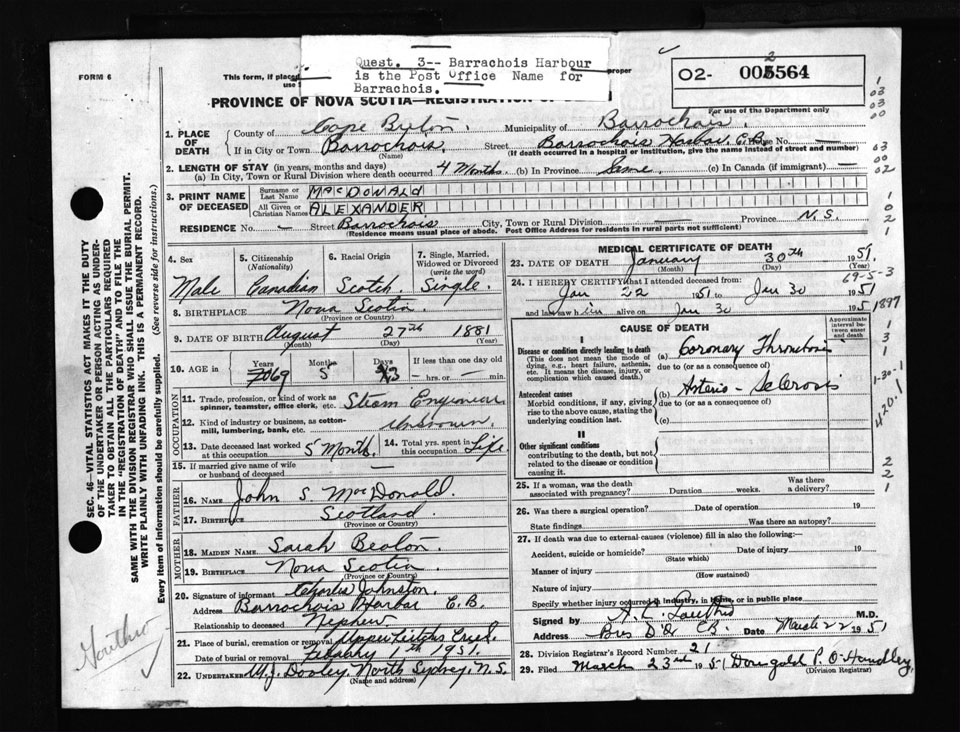 Quest. 3-- Barrachois Harbour
is the Post Office Name for
Barrachois.
FORM 6
This form, if placed
use
proper
O2- 002564
PROVINCE OF NOVA SCOTIA—REGISTRATION OF
For use of the Department only
1. PLACE OF DEATH
County of Cape Breton Municipality of Barrochois
If in City or Town Barrochois Street Barrochois Harbor C.B. No. —
(Name) (If death occurred in a hospital or institution, give the name instead of street and number)
2. LENGTH OF STAY (in years, months and days)
(a) In City, Town or Rural Division where death occurred 4 Months. (b) In Province Same (c) In Canada (if immigrant) —
3. PRINT NAME OF DECEASED
Surname or Last Name MACDONALD
All Given or Christian Names ALEXANDER
RESIDENCE No. — Street Barrochois City, Town or Rural Division — Province N.S.
(Residence means usual place of abode. Post Office Address for residents in rural parts not sufficient)
4. Sex Male
5. Citizenship (Nationality) Canadian
6. Racial Origin Scotch
7. Single, Married, Widowed or Divorced (write the word) Single.
8. BIRTHPLACE Nova Scotia
(Province or Country)
9. DATE OF BIRTH August 27th 1881
(Month) (Day) (Year)
10. AGE in Years 69 Months 5 Days 3 If less than one day old — hrs. or — min.
OCCUPATION
11. Trade, profession, or kind of work as spinner, teamster, office clerk, etc. Steam Engineer
12. Kind of industry or business, as cotton-mill, lumbering, bank, etc. Unknown.
13. Date deceased last worked at this occupation 5 Month.
14. Total yrs. spent in this occupation Life.
15. If married give name of wife or husband of deceased —
FATHER
16. NAME John S. MacDonald.
17. BIRTHPLACE Scotland
(Province or Country)
MOTHER
18. MAIDEN NAME Sarah Beaton.
19. BIRTHPLACE Nova Scotia
(Province or Country)
20. Signature of informant Charles Johnston.
Address Barrochois Harbor C.B.
Relationship to deceased Nephew
21. Place of burial, cremation or removal Upper Leitches Creek.
Date of burial or removal 1st 1951.
22. UNDERTAKER W.J. Dooley, North Sydney, N.S.
(Name and address)
MEDICAL CERTIFICATE OF DEATH
23. DATE OF DEATH January 30th 1951
(Month) (Day) (Year)
24. I HEREBY CERTIFY that I attended deceased from:
Jan 22 1951 to Jan 30 1951
and last saw him alive on Jan 30 1951
CAUSE OF DEATH
Approximate interval between onset and death
I
Disease or condition directly leading to death
(This does not mean the mode of dying, e.g., heart failure, asthenia, etc. It means the disease, injury, or complication which caused death.)
(a) Coronary Thrombosis
due to (or as a consequence of)
Antecedent causes
Morbid conditions, if any, giving rise to the above cause, stating the underlying condition last.
(b) Arterio-Sclerosis
due to (or as a consequence of)
(c)
II
Other significant conditions
contributing to the death, but not related to the disease or condition causing it.
25. If a woman, was the death associated with pregnancy? Duration weeks. Was there a delivery?
26. Was there a surgical operation? Date of operation 19
State findings Was there an autopsy?
27. If death was due to external causes (violence) fill in also the following:—
Accident, suicide or homicide? Date of injury 19
(State which)
Manner of injury
(How sustained)
Nature of injury
Specify whether injury occurred in industry, in home, or in public place
Signed by M.D.
Address Date March 22 1951
28. Division Registrar's Record Number 21
29. Filed March 23rd 1951 P. O'Handley,
(Division Registrar)
SEC. 46—VITAL STATISTICS ACT MAKES IT THE DUTY
OF THE UNDERTAKER OR PERSON ACTING AS UNDER-
TAKER TO OBTAIN ALL THE PARTICULARS REQUIRED
IN THE "REGISTRATION OF DEATH" AND TO FILE THE
SAME WITH THE DIVISION REGISTRAR WHO SHALL ISSUE THE BURIAL PERMIT.
WRITE PLAINLY WITH UNFADING INK. THIS IS A PERMANENT RECORD.
Every item of information should be carefully supplied. (See reverse side for instructions.)
1
03
03
00
03
00
02
1
0
2
1
69-5-3
1897
1
3
1
1-30-1
420.1
2
2
1